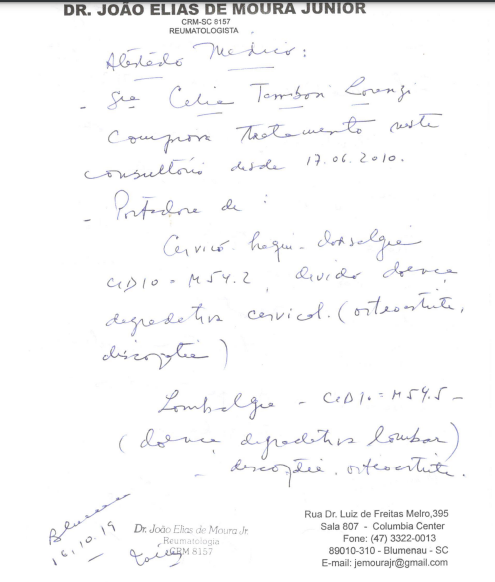 DR. JOÃO ELIAS DE MOURA JUNIOR
CRM-SC 8157
REUMATOLOGISTA
Atestado Medico:
- Sra Celia Tamboni Lorenzi
comprova tratamento neste
consultório desde 17.06.2010.
- Portadora de :
Cervico. braqui - dorsalgia
CID10 = M54.2, devido doença
degradativa cervical. (osteoartrite,
discopatia)
Lombalgia - CID10 = M54.5 -
(doença degradativa lombar)
- discopatia. osteoartrite.
Blumenau
16.10.19
Dr. João Elias de Moura Jr.
Reumatologia
CRM 8157
Rua Dr. Luiz de Freitas Melro,395
Sala 807 - Columbia Center
Fone: (47) 3322-0013
89010-310 - Blumenau - SC
E-mail: jemourajr@gmail.com